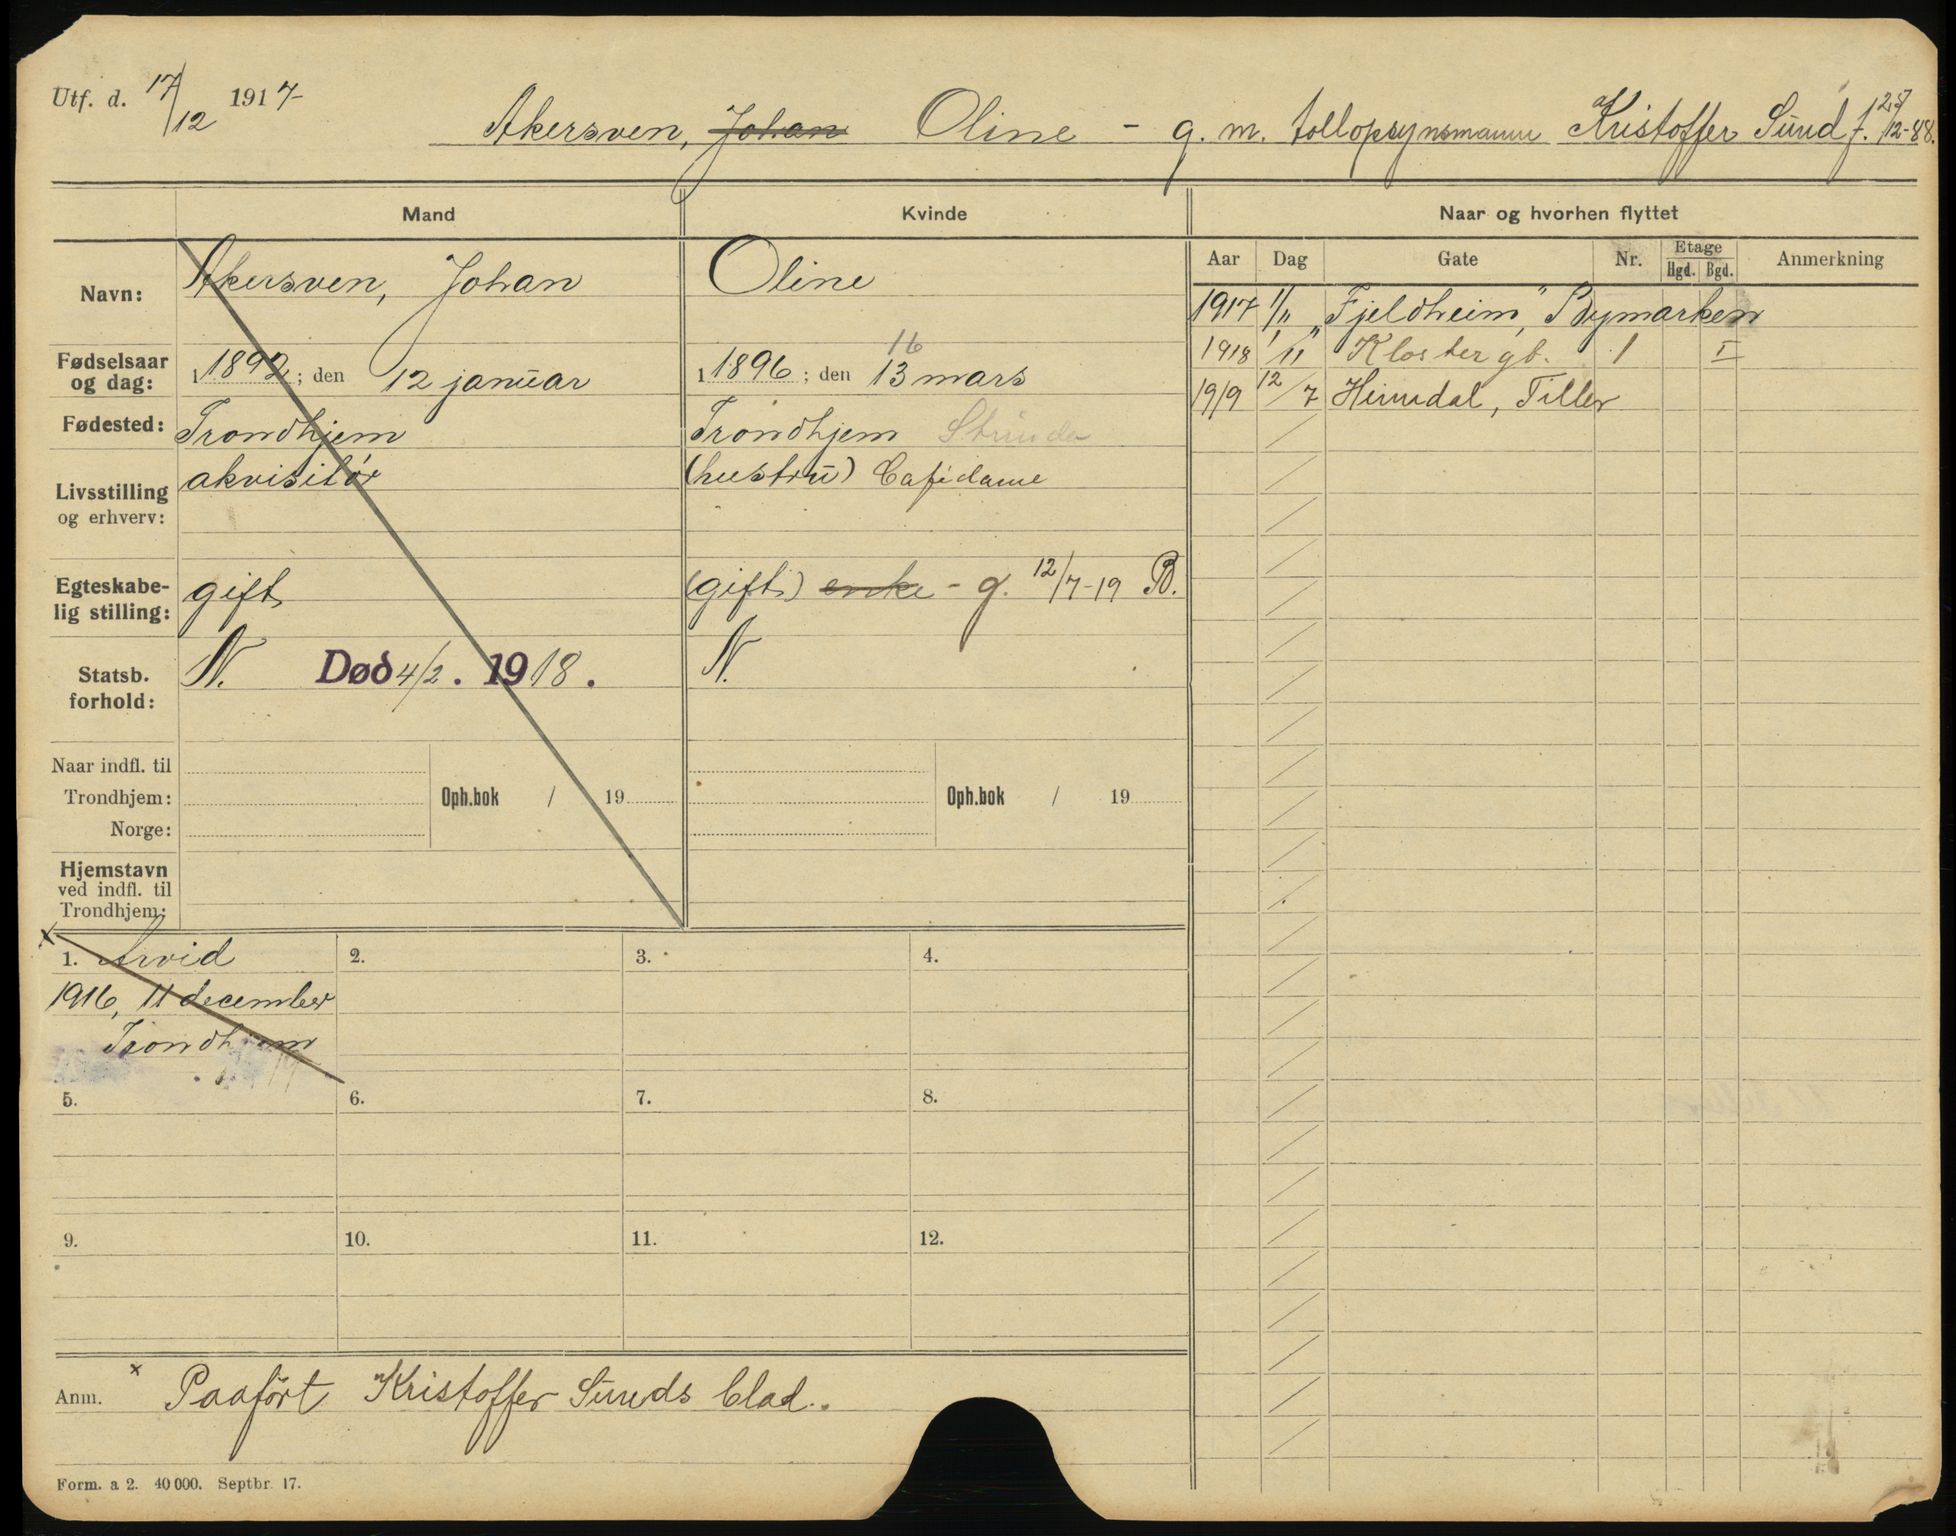 Utf. d. 17/12 1917
Akersven, Johan Oline - g. m. tollopsynsmann Kristoffer Sund f. 25/12-88.
Mand Kvinde Naar og hvorhen flyttet
Aar Dag Gate Nr. Etage Hgd. Bgd. Anmerkning
Navn: Akersven, Johan Oline
1917 1/11 "Fjeldheim", Bymarken
Fødselsaar og dag: i 1892; den 12 januar i 1896; den 13 mars 16
1918 1/11 Klostergb. 1 I
1919 12/7 Heimdal, Tiller
Fødested: Trondhjem Trondhjem Strinda
Livsstilling og erhverv: akvisitør (hustru) Cafédame
Egteskabe-
lig stilling: gift (gift) enke - g. 12/7-19 B.
Statsb. forhold: N. Død 4/2. 1918. N.
Naar indfl. til
Trondhjem: Oph.bok / 19 Oph.bok / 19
Norge:
Hjemstavn
ved indfl. til
Trondhjem:
x 1. Arvid 2. 3. 4.
1916, 11 december
Trondhjem
5. 6. 7. 8.
9. 10. 11. 12.
Anm. x Paaført Kristoffer Sunds blad.
Form. a 2. 40 000. Septbr. 17.